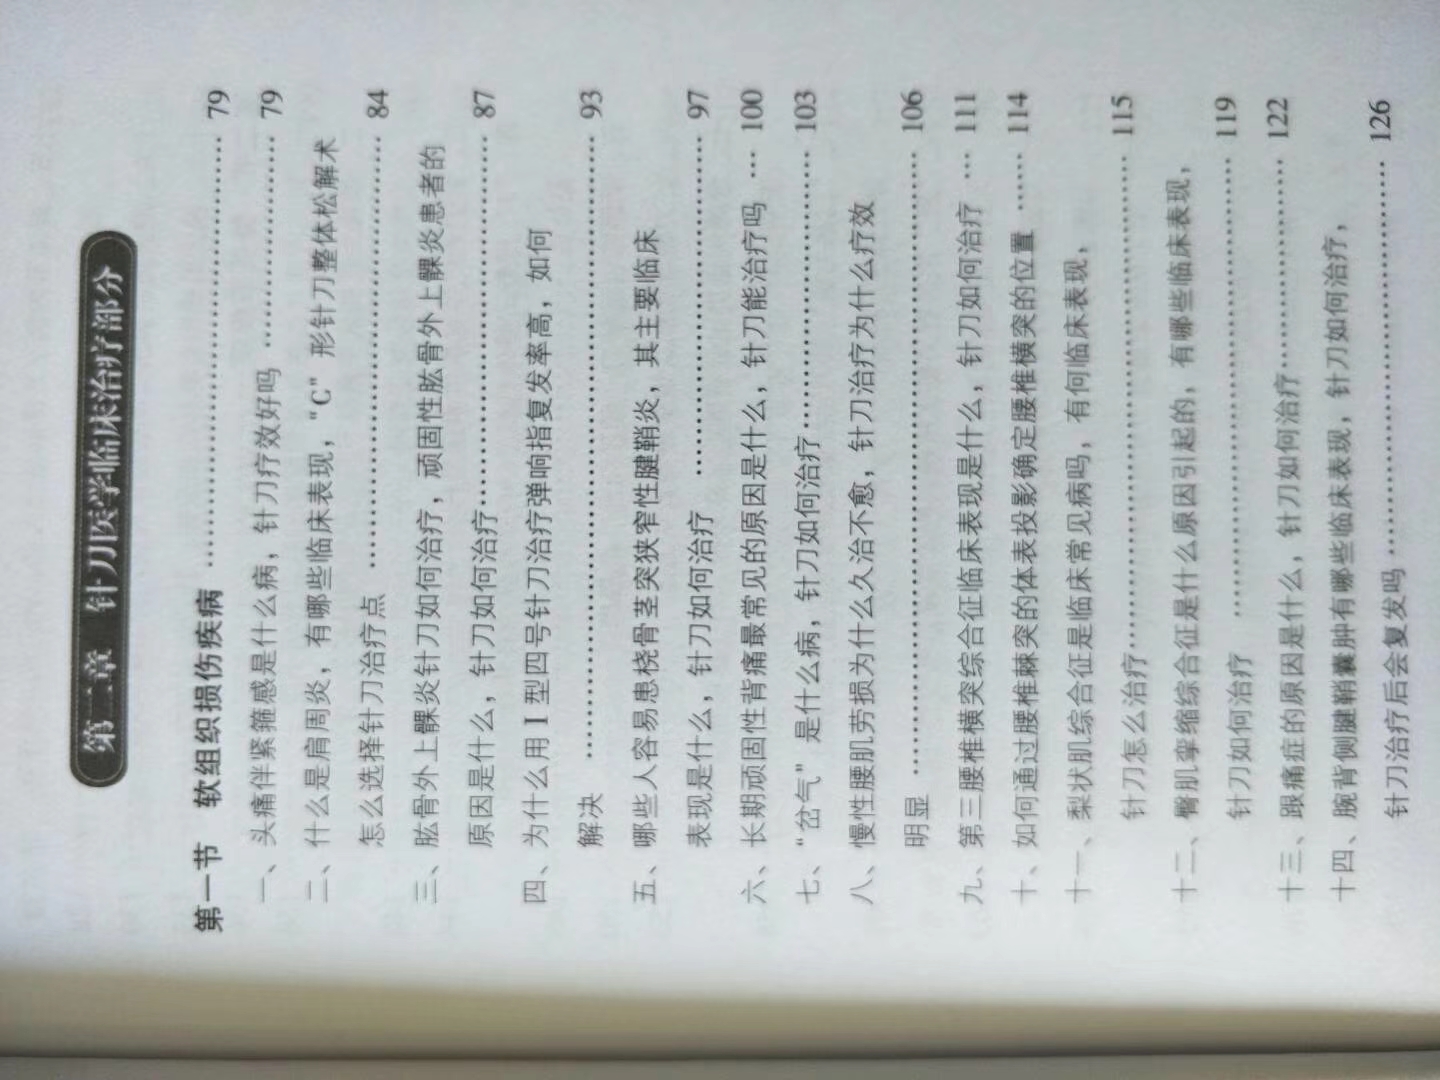 第二章 针刀医学临床治疗部分
第一节 软组织损伤疾病 …… 79
一、头痛伴紧箍感是什么病，针刀疗效好吗 …… 79
二、什么是肩周炎，有哪些临床表现，“C”形针刀整体松解术
怎么选择针刀治疗点 …… 84
三、肱骨外上髁炎针刀如何治疗，顽固性肱骨外上髁炎患者的
原因是什么，针刀如何治疗 …… 87
四、为什么用Ⅰ型四号针刀治疗弹响指复发率高，如何
解决 …… 93
五、哪些人容易患桡骨茎突狭窄性腱鞘炎，其主要临床
表现是什么，针刀如何治疗 …… 97
六、长期顽固性背痛最常见的原因是什么，针刀能治疗吗 … 100
七、“岔气”是什么病，针刀如何治疗 …… 103
八、慢性腰肌劳损为什么久治不愈，针刀治疗为什么疗效
明显 …… 106
九、第三腰椎横突综合征临床表现是什么，针刀如何治疗 … 111
十、如何通过腰椎棘突的体表投影确定腰椎横突的位置 …… 114
十一、梨状肌综合征是临床常见病吗，有何临床表现，
针刀怎么治疗 …… 115
十二、臀肌挛缩综合征是什么原因引起的，有哪些临床表现，
针刀如何治疗 …… 119
十三、跟痛症的原因是什么，针刀如何治疗 …… 122
十四、腕背侧腱鞘囊肿有哪些临床表现，针刀如何治疗，
针刀治疗后会复发吗 …… 126